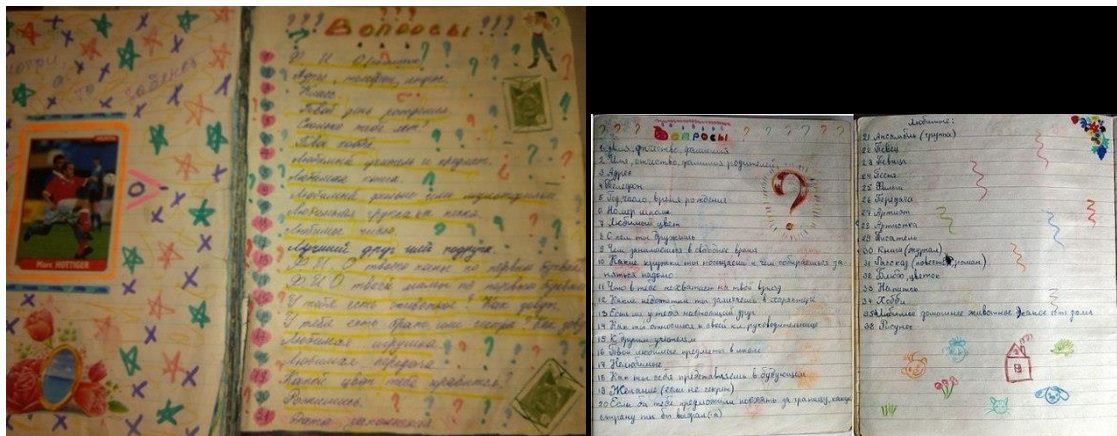 Marc HOTTIGER
Вопросы
Ф И О
Адрес, телефон, индекс.
Класс
Твой день рождения
Сколько тебе лет?
Твоё хобби.
Любимый учитель и предмет.
Любимая книга.
Любимый фильм или мультфильм
Любимая группа, песня.
Любимое число.
Лучший друг или подруга.
Ф И О твоего папы по первым буквам
Ф И О твоей мамы по первым буквам
У тебя есть животное? Как зовут.
У тебя есть брат или сестра Как зовут
Любимая игрушка
Любимая передача
Какой цвет тебе нравится?
Распишись.
Дата
Вопросы
1 Имя, отчество, фамилия
2 Имя, отчество, фамилия родителей
3 Адрес
4 Телефон
5 Год, число, время рождения
6 Номер школы
7 Любимый цвет
8 С кем ты дружишь
9 Чем занимаешься в свободное время
10 Какие кружки ты посещаешь и чем собираешься за-
няться надолго
11 Что в тебе не хватает на твой взгляд
12 Какие недостатки ты замечаешь в характере
13 Есть ли у тебя настоящий друг
14 Как ты относишься к своей кл. руководительнице
15 К другим учителям
16 Твои любимые предметы в школе
17 Нелюбимые
18 Как ты себя представляешь в будующем
19 Желание (если не секрет)
20 Если бы тебе предложили поехать за границу, какую
страну ты бы выбрал(-а)
Любимые:
21 Ансамбль (группа)
22 Певец
23 Певица
24 Песня
25 Фильм
26 Передача
27 Артист
28 Артистка
29 Писатель
30 Книга (журнал)
31 Рассказ (повесть, роман)
32 Блюдо, цветок
33 Напиток
34 Хобби
35 Любимое домашнее животное
36 Рисунок